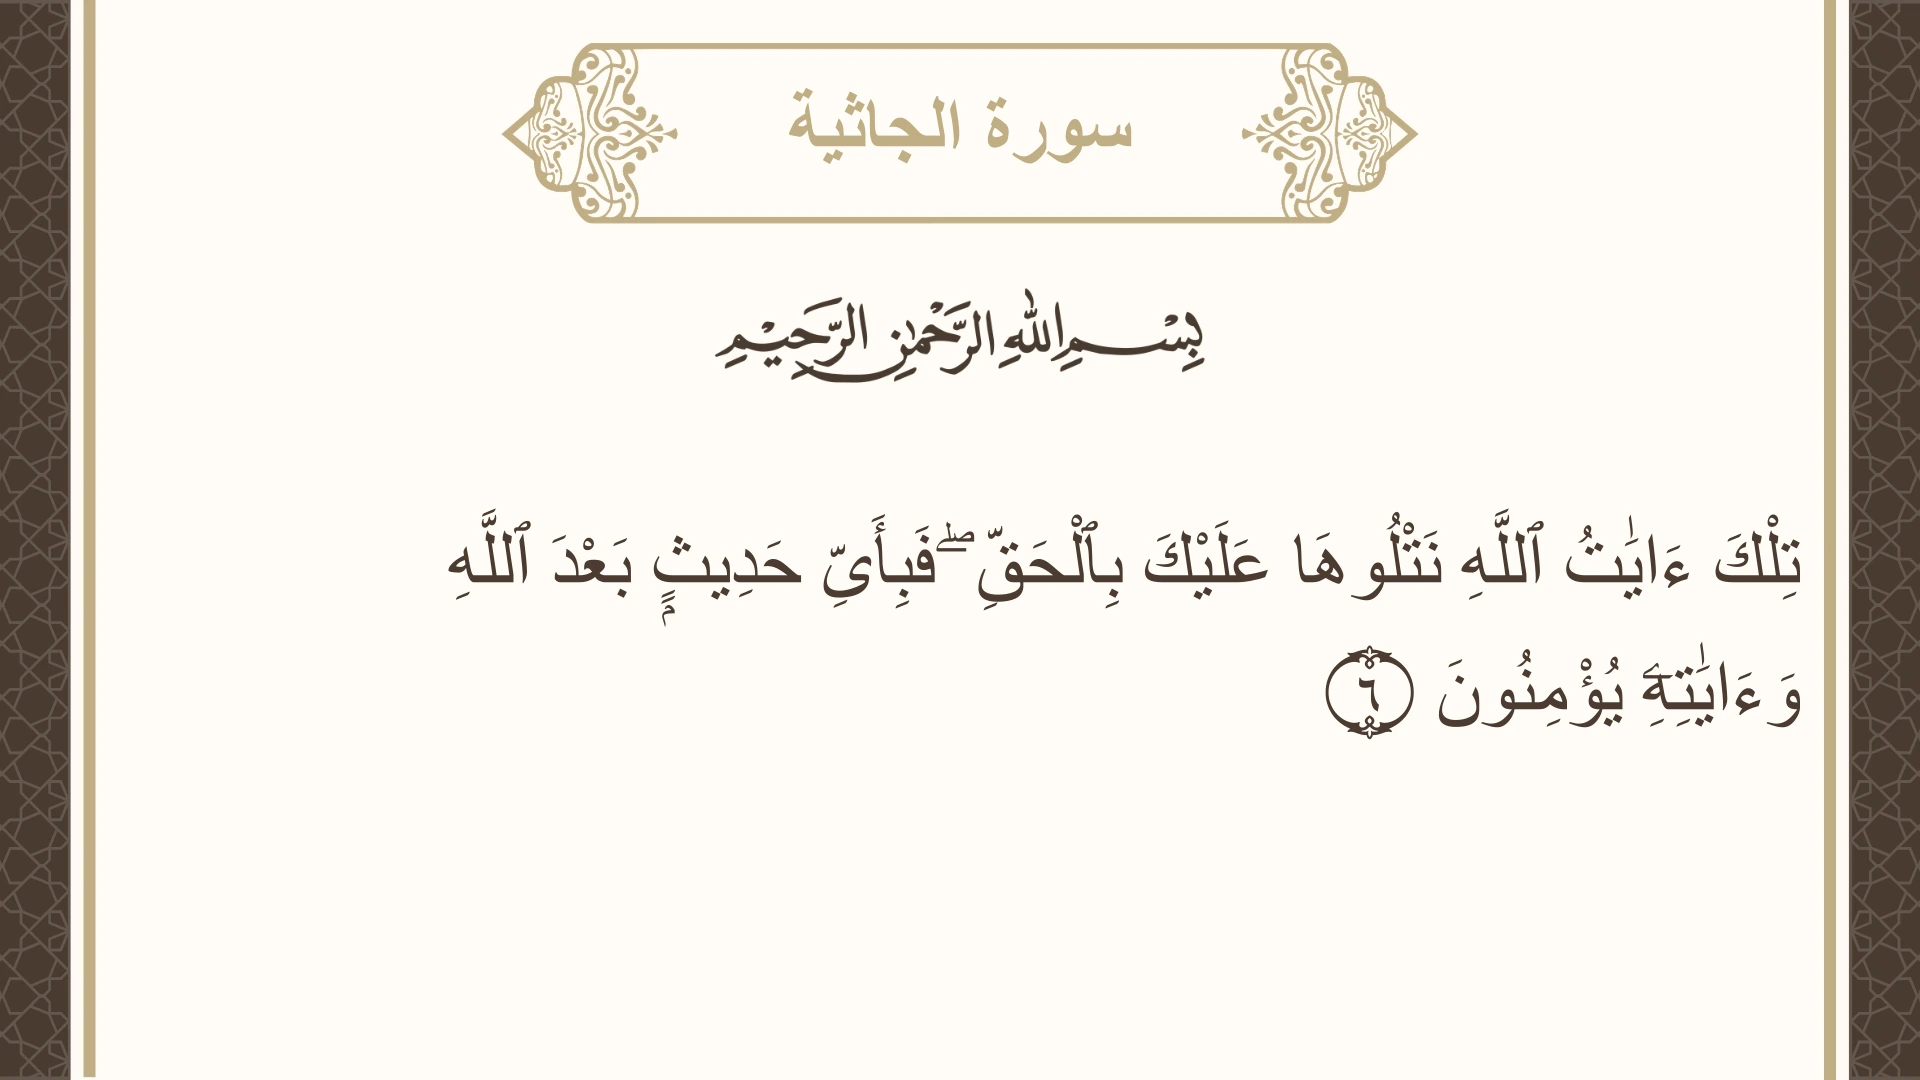 سورة الجاثية
بِسْمِ اللهِ الرَّحْمٰنِ الرَّحِيْمِ
تِلْكَ ءَايَٰتُ ٱللَّهِ نَتْلُوهَا عَلَيْكَ بِٱلْحَقِّ ۖ فَبِأَىِّ حَدِيثٍۭ بَعْدَ ٱللَّهِ
وَءَايَٰتِهِۦ يُؤْمِنُونَ ٦